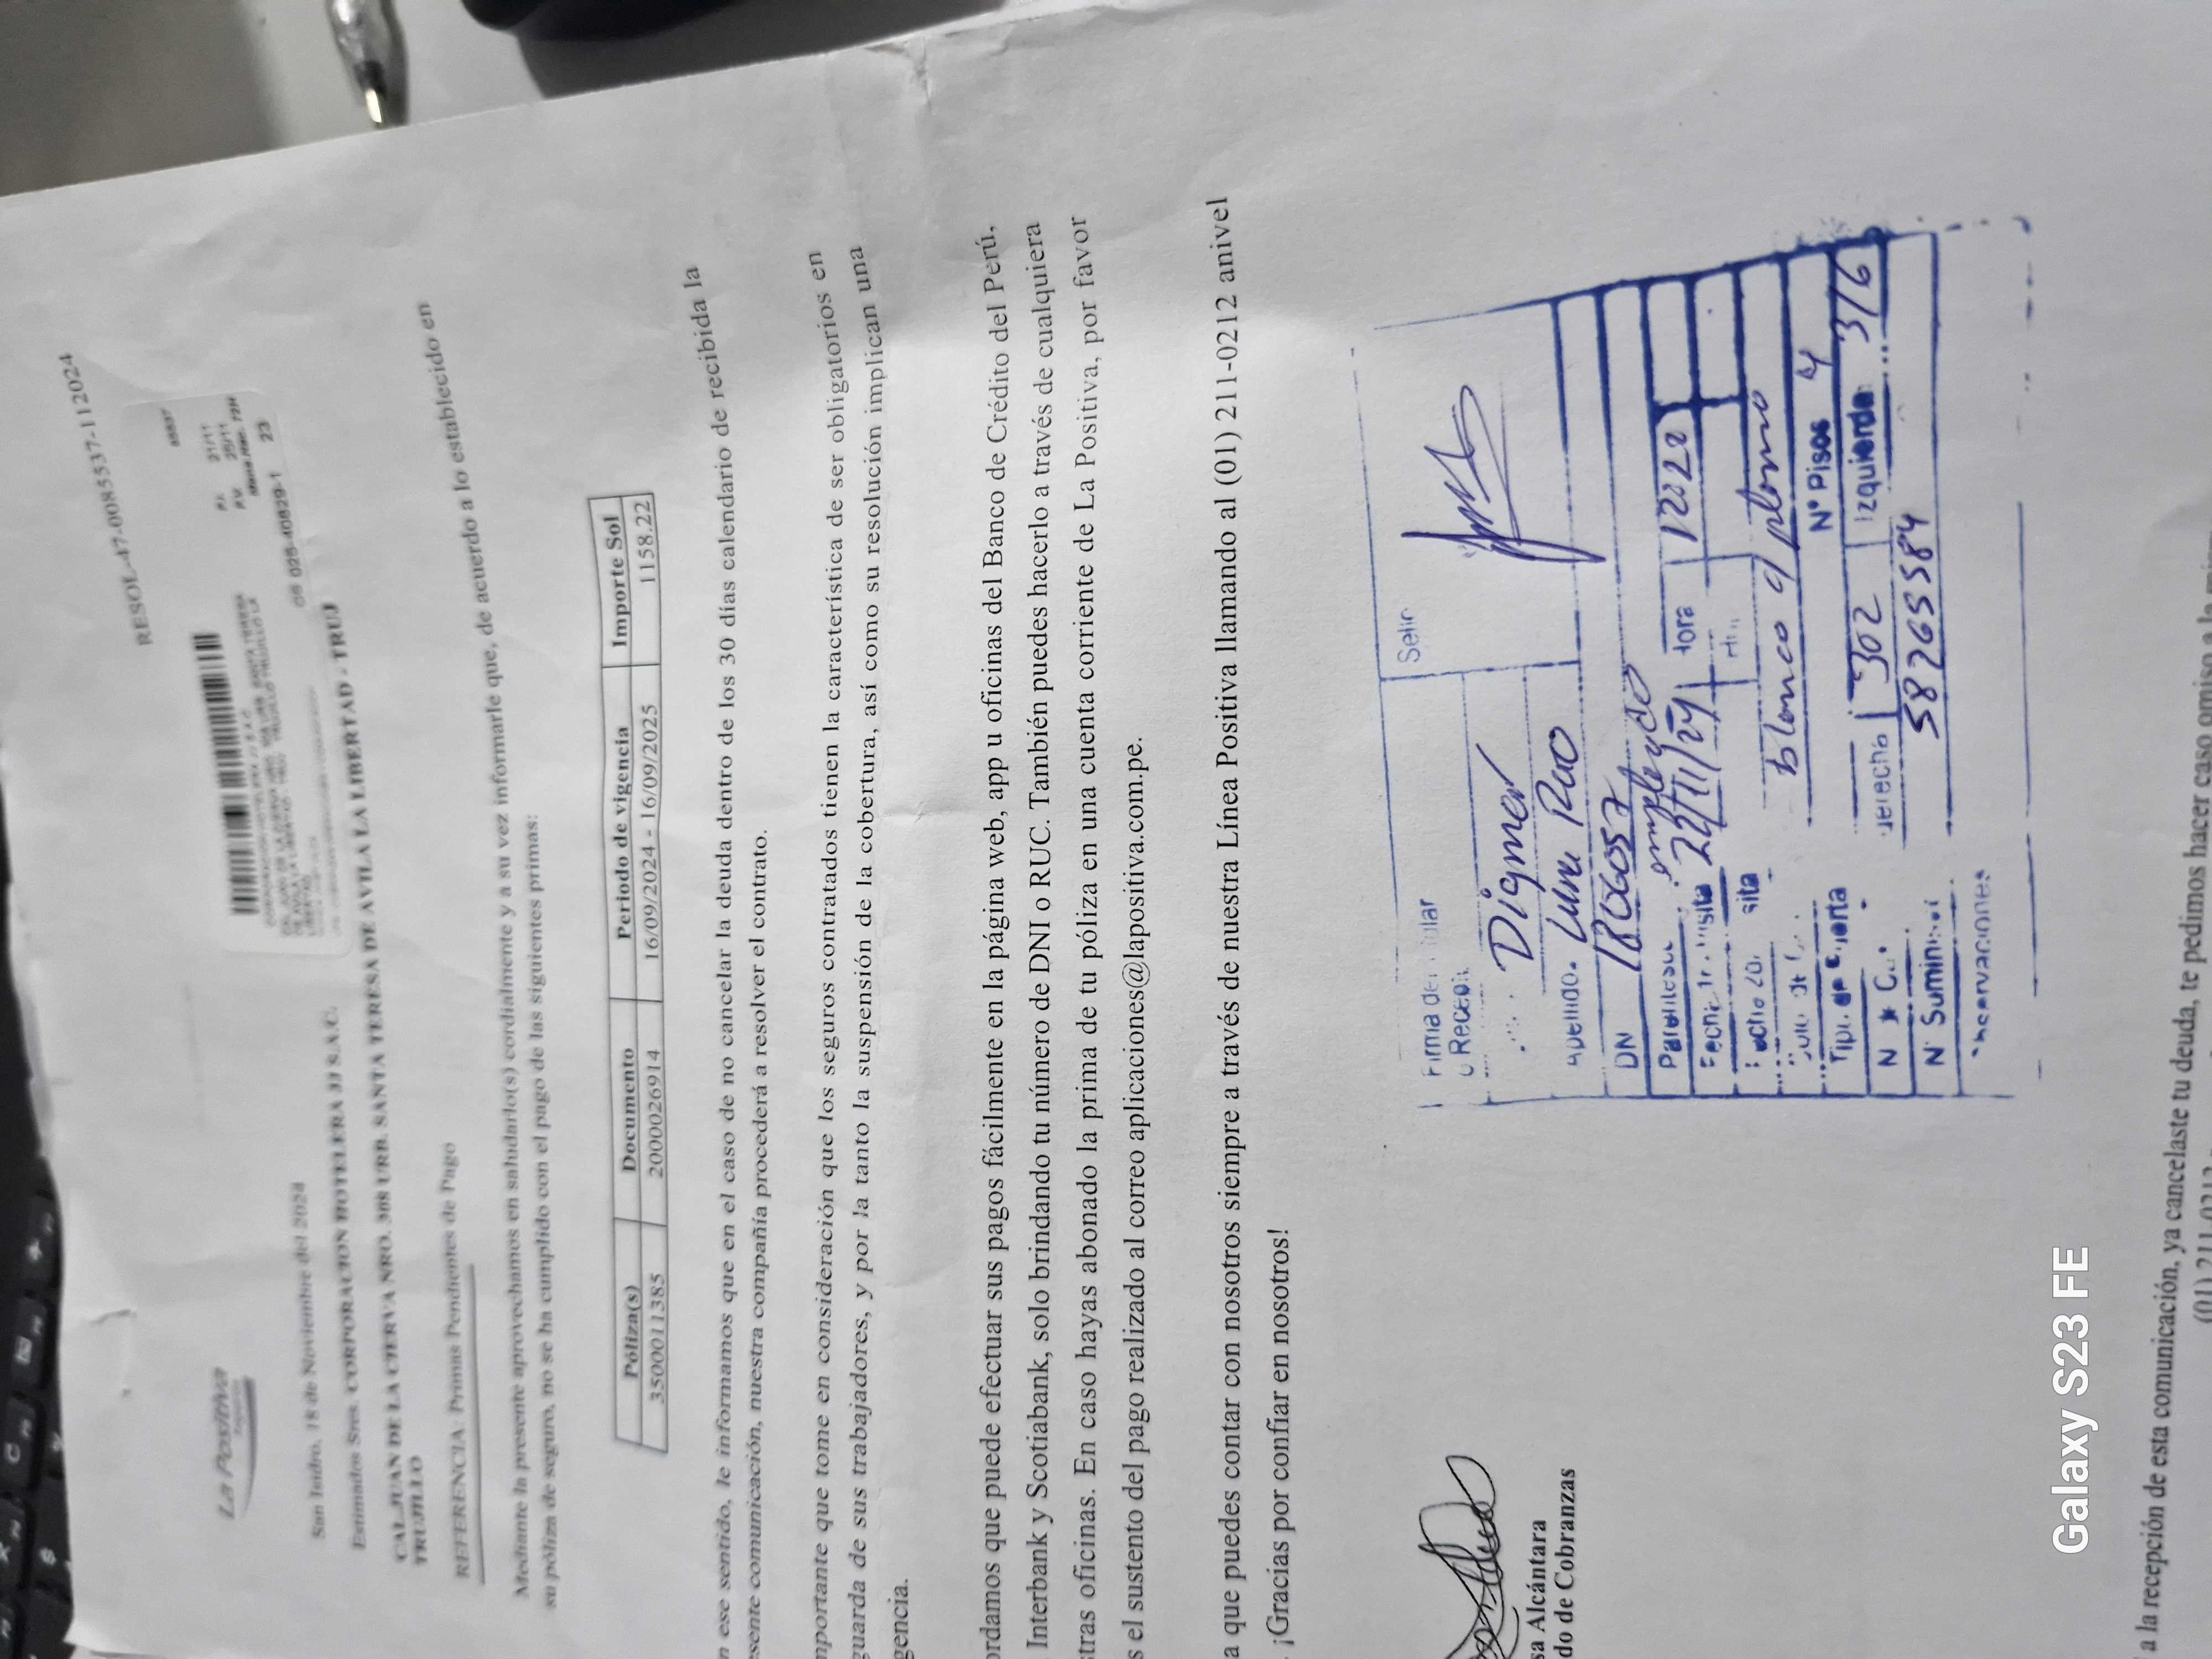 RESOL-47-0085537-112024
La Positiva
Seguros
21/11
25/11
72H
OS 025-40829-1 23
San Isidro, 18 de Noviembre del 2024
Estimados Sres. CORPORACION HOTELERA JJ S.A.C.
CAL.JUAN DE LA CIERVA NRO. 308 URB. SANTA TERESA DE AVILA LA LIBERTAD - TRUJ
TRUJILLO
REFERENCIA: Primas Pendientes de Pago
Mediante la presente aprovechamos en saludarlo(s) cordialmente y a su vez informarle que, de acuerdo a lo establecido en
su póliza de seguro, no se ha cumplido con el pago de las siguientes primas:
Póliza(s) Documento Periodo de vigencia Importe Sol
3500011385 2000026914 16/09/2024 - 16/09/2025 1158.22
n ese sentido, le informamos que en el caso de no cancelar la deuda dentro de los 30 días calendario de recibida la
sente comunicación, nuestra compañía procederá a resolver el contrato.
mportante que tome en consideración que los seguros contratados tienen la característica de ser obligatorios en
guarda de sus trabajadores, y por la tanto la suspensión de la cobertura, así como su resolución implican una
gencia.
ordamos que puede efectuar sus pagos fácilmente en la página web, app u oficinas del Banco de Crédito del Perú,
Interbank y Scotiabank, solo brindando tu número de DNI o RUC. También puedes hacerlo a través de cualquiera
stras oficinas. En caso hayas abonado la prima de tu póliza en una cuenta corriente de La Positiva, por favor
s el sustento del pago realizado al correo aplicaciones@lapositiva.com.pe.
a que puedes contar con nosotros siempre a través de nuestra Línea Positiva llamando al (01) 211-0212 anivel
. ¡Gracias por confiar en nosotros!
sa Alcántara
do de Cobranzas
Firma del titular
Digner
Apellido. Luna
DN
empleado
22/11/24 Hora 12:22
blanco y plomo
N° Pisos 4
Tipo de
derecho 302 Izquierda 316
N° Sumini 58265584
Observaciones
a la recepción de esta comunicación, ya cancelaste tu deuda, te pedimos hacer caso omiso a la
(01) 211-0212
Galaxy S23 FE